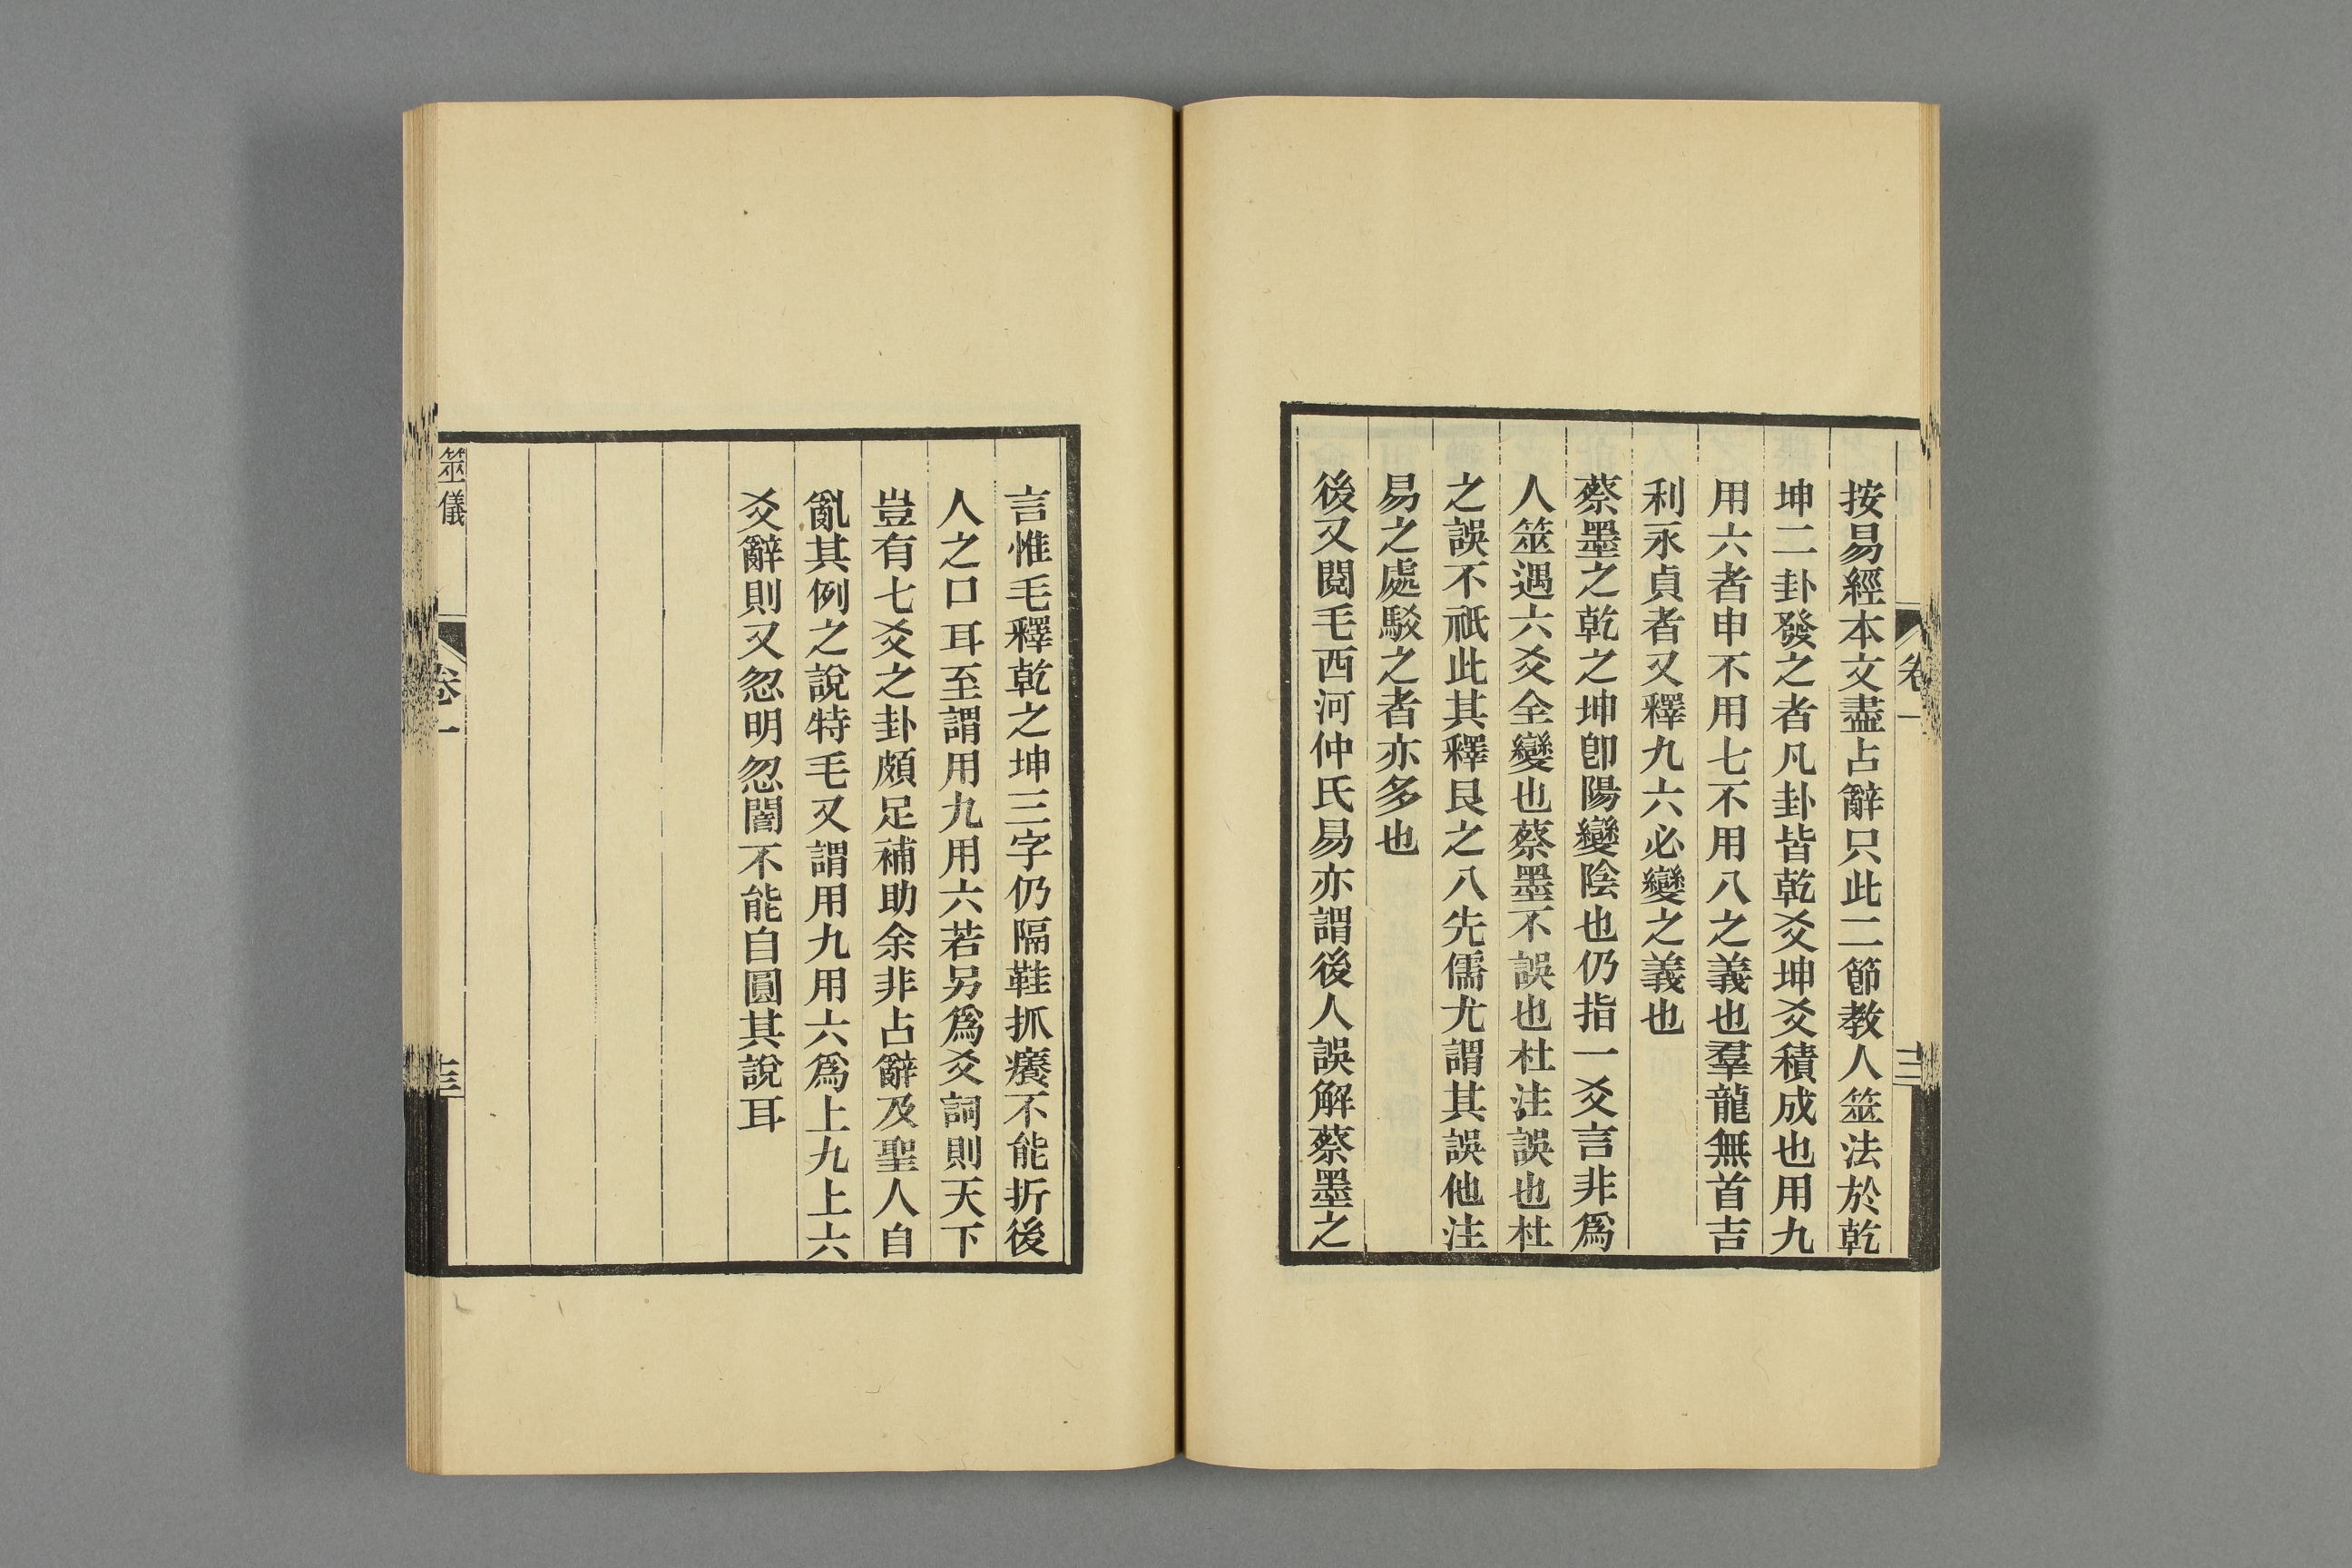 按易經本文盡占辭只此二節教人筮法於乾
坤二卦發之者凡卦皆乾爻坤爻積成也用九
用六者申不用七不用八之義也羣龍無首吉
利永貞者又釋九六必變之義也
蔡墨之乾之坤卽陽變陰也仍指一爻言非爲
人筮遇六爻全變也蔡墨不誤也杜注誤也杜
之誤不祇此其釋艮之八先儒尤謂其誤他注
易之處駁之者亦多也
後又閱毛西河仲氏易亦謂後人誤解蔡墨之
卷一
言惟毛釋乾之坤三字仍隔鞋抓癢不能折後
人之口耳至謂用九用六若另爲爻詞則天下
豈有七爻之卦頗足補助余非占辭及聖人自
亂其例之說特毛又謂用九用六爲上九上六
爻辭則又忽明忽闇不能自圓其說耳
筮儀
卷一